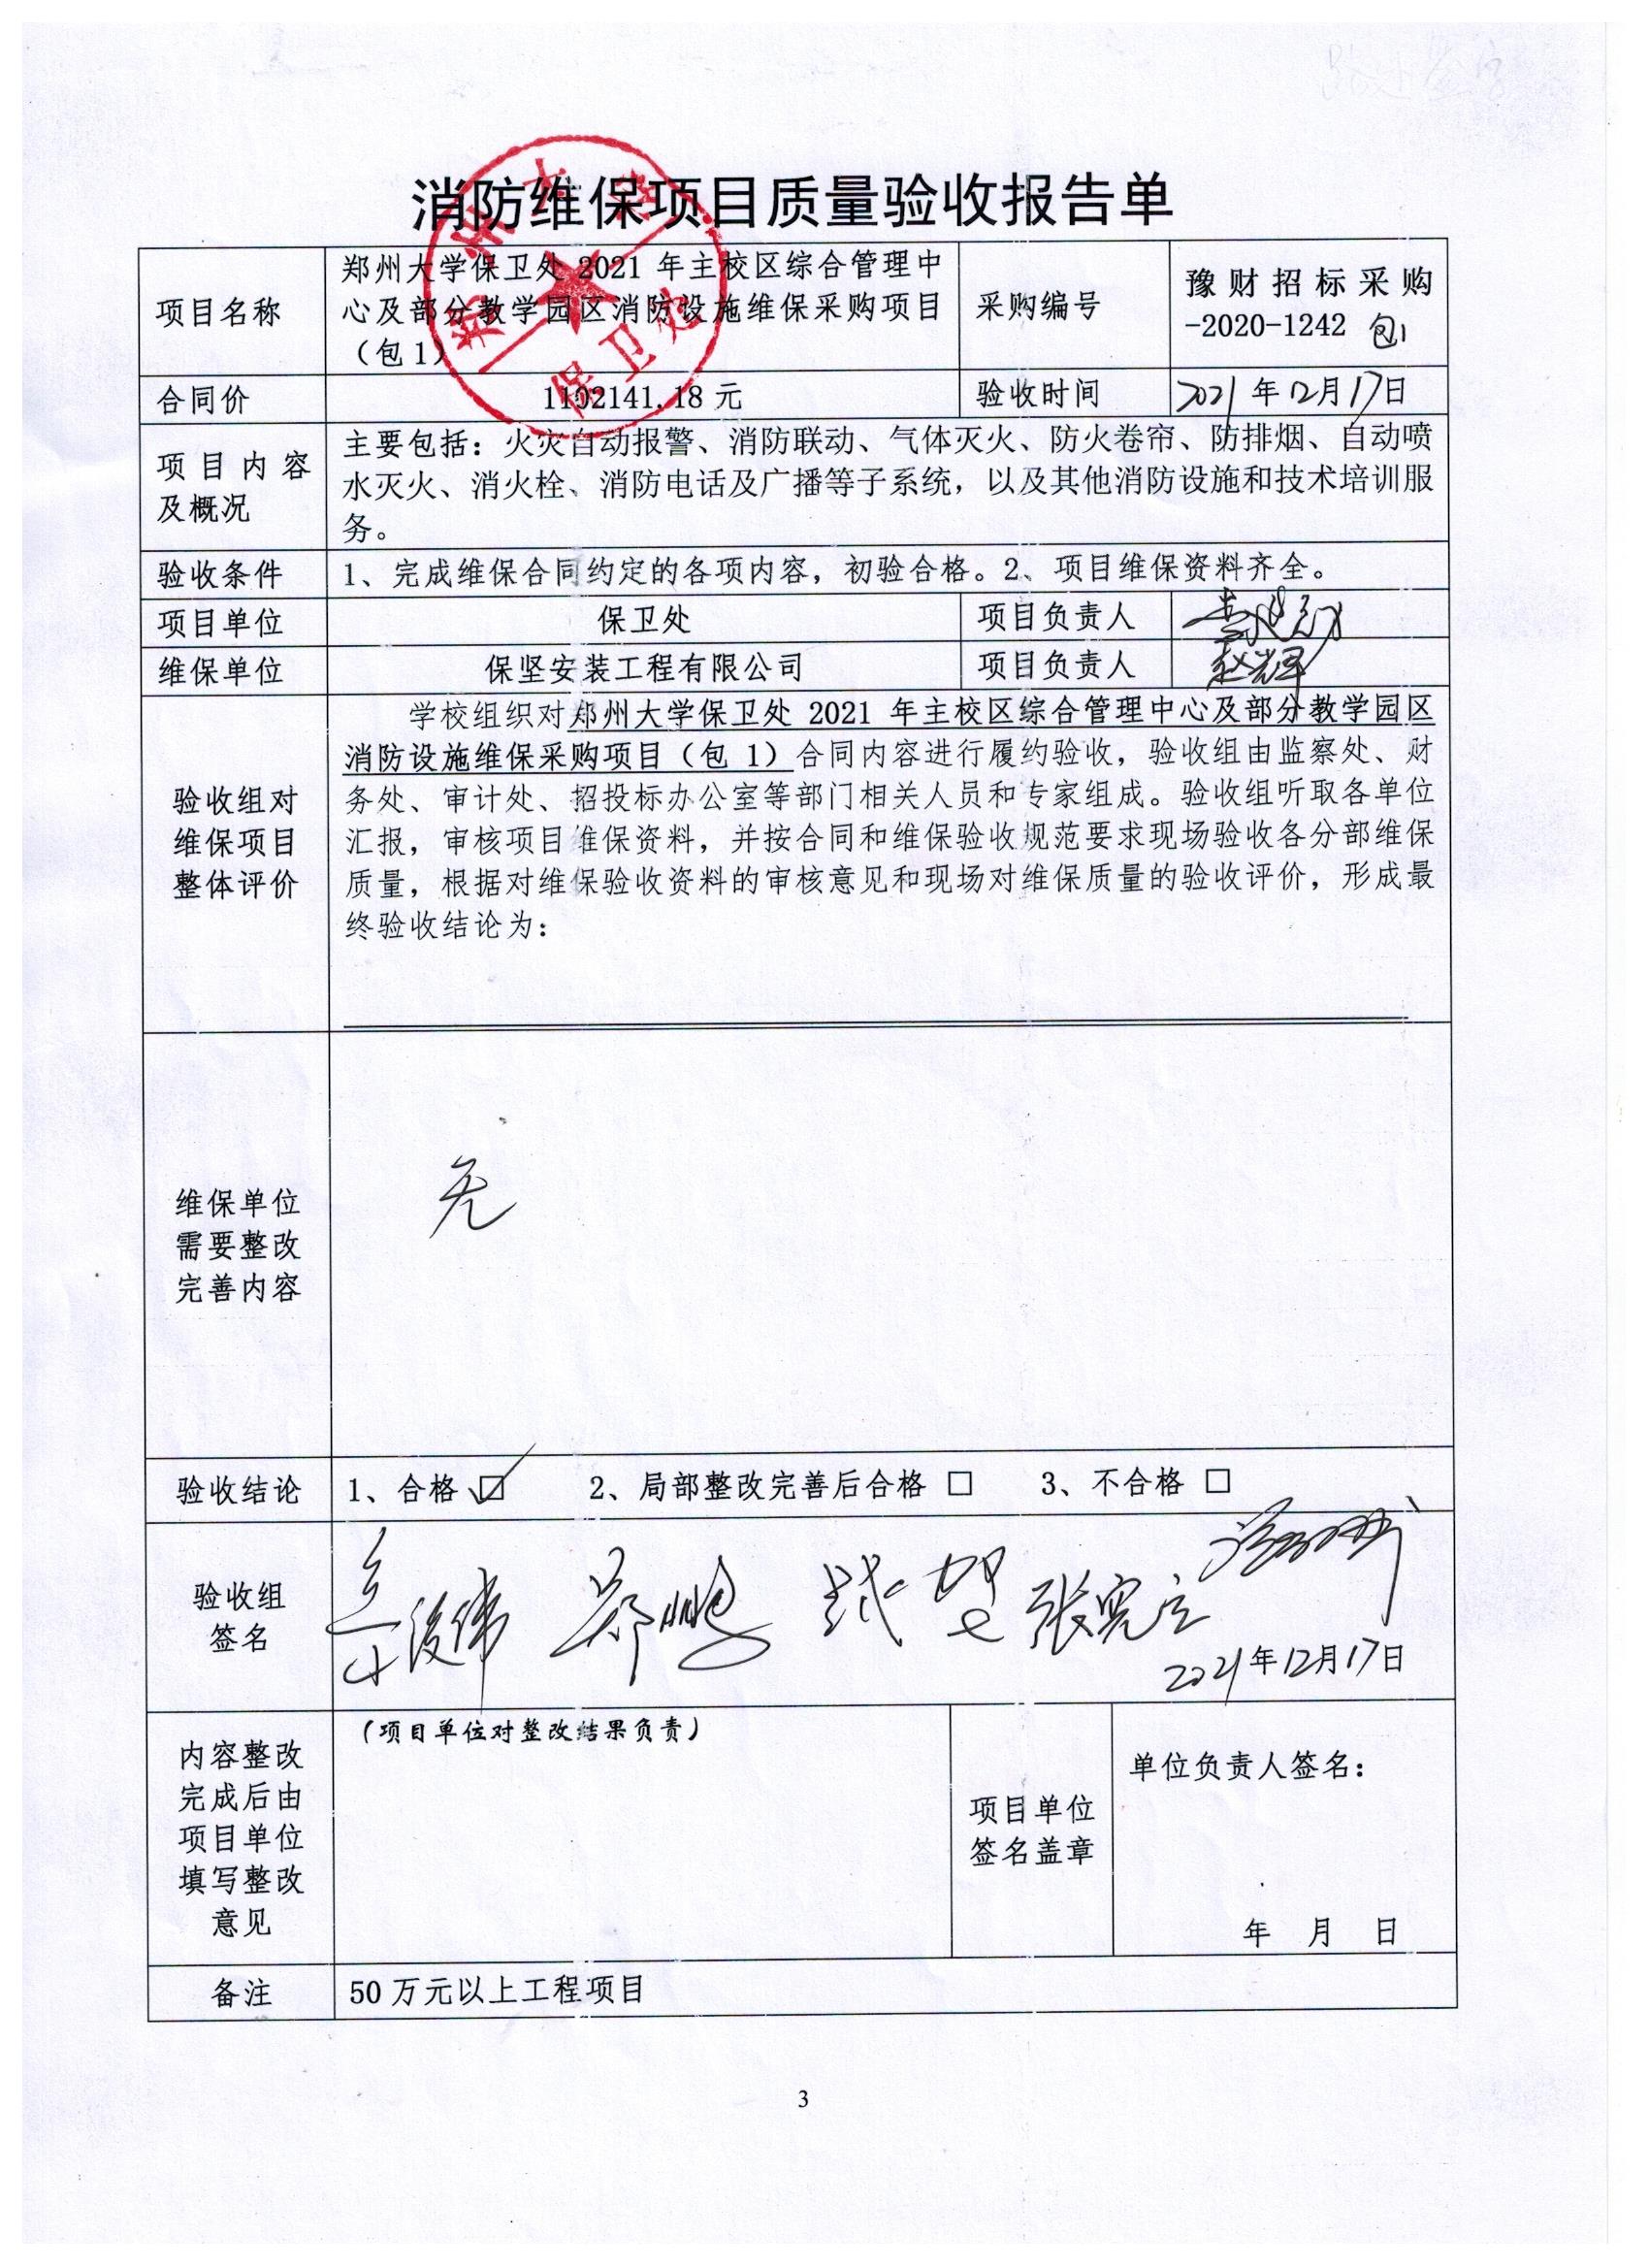 消防维保项目质量验收报告单
项目名称
郑州大学保卫处 2021 年主校区综合管理中
心及部分教学园区消防设施维保采购项目
（包 1）
采购编号
豫财招标采购
-2020-1242 包1
郑州大学
保卫处
合同价
1102141.18 元
验收时间
2021年12月17日
项目内容
及概况
主要包括：火灾自动报警、消防联动、气体灭火、防火卷帘、防排烟、自动喷
水灭火、消火栓、消防电话及广播等子系统，以及其他消防设施和技术培训服
务。
验收条件
1、完成维保合同约定的各项内容，初验合格。2、项目维保资料齐全。
项目单位
保卫处
项目负责人
维保单位
保坚安装工程有限公司
项目负责人
赵耀军
验收组对
维保项目
整体评价
学校组织对郑州大学保卫处 2021 年主校区综合管理中心及部分教学园区
消防设施维保采购项目（包 1）合同内容进行履约验收，验收组由监察处、财
务处、审计处、招投标办公室等部门相关人员和专家组成。验收组听取各单位
汇报，审核项目维保资料，并按合同和维保验收规范要求现场验收各分部维保
质量，根据对维保验收资料的审核意见和现场对维保质量的验收评价，形成最
终验收结论为：
维保单位
需要整改
完善内容
无
验收结论
1、合格 ☑ 2、局部整改完善后合格 □ 3、不合格 □
验收组
签名
郑鹏 张宪立
2021年12月17日
内容整改
完成后由
项目单位
填写整改
意见
（项目单位对整改结果负责）
项目单位
签名盖章
单位负责人签名：
年 月 日
备注
50 万元以上工程项目
3